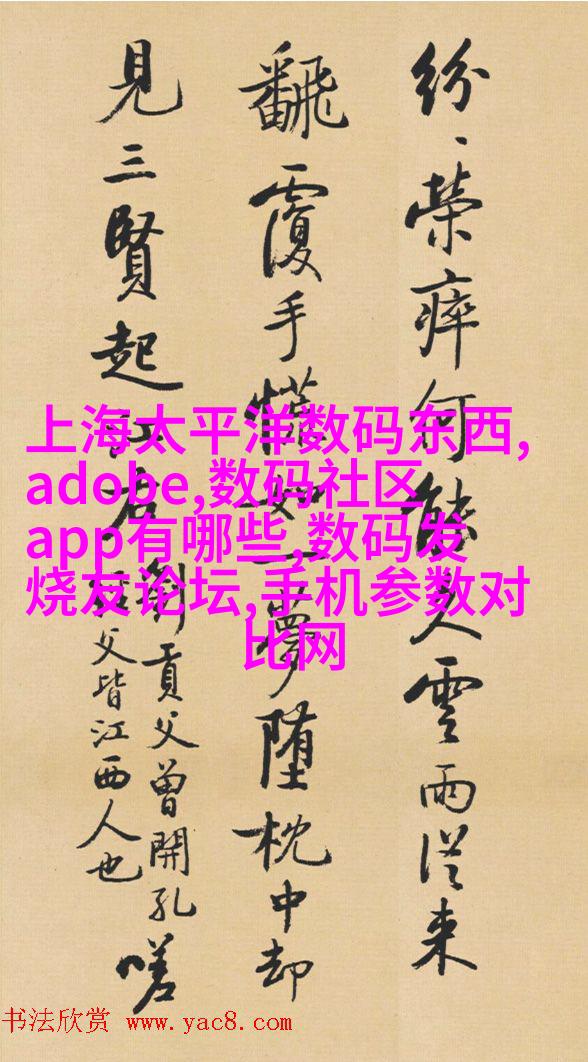 紛、榮瘁何能久雲雨從来
飜覆手慌如一夢堕枕中却
見三賢起江右
劉貢父曾開孔
父皆江西人也
嗟
上海太平洋数码东西,
adobe,数码社区
app有哪些,数码发
烧友论坛,手机参数对
比网
书法欣赏 www.yac8.com